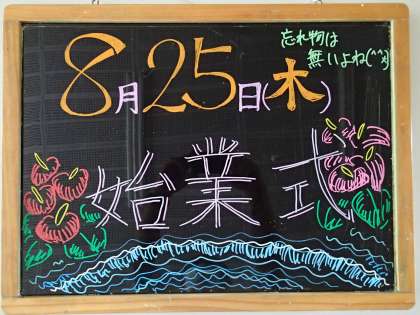 8月25日(木)
忘れ物は
無いよね(^^)
始業式